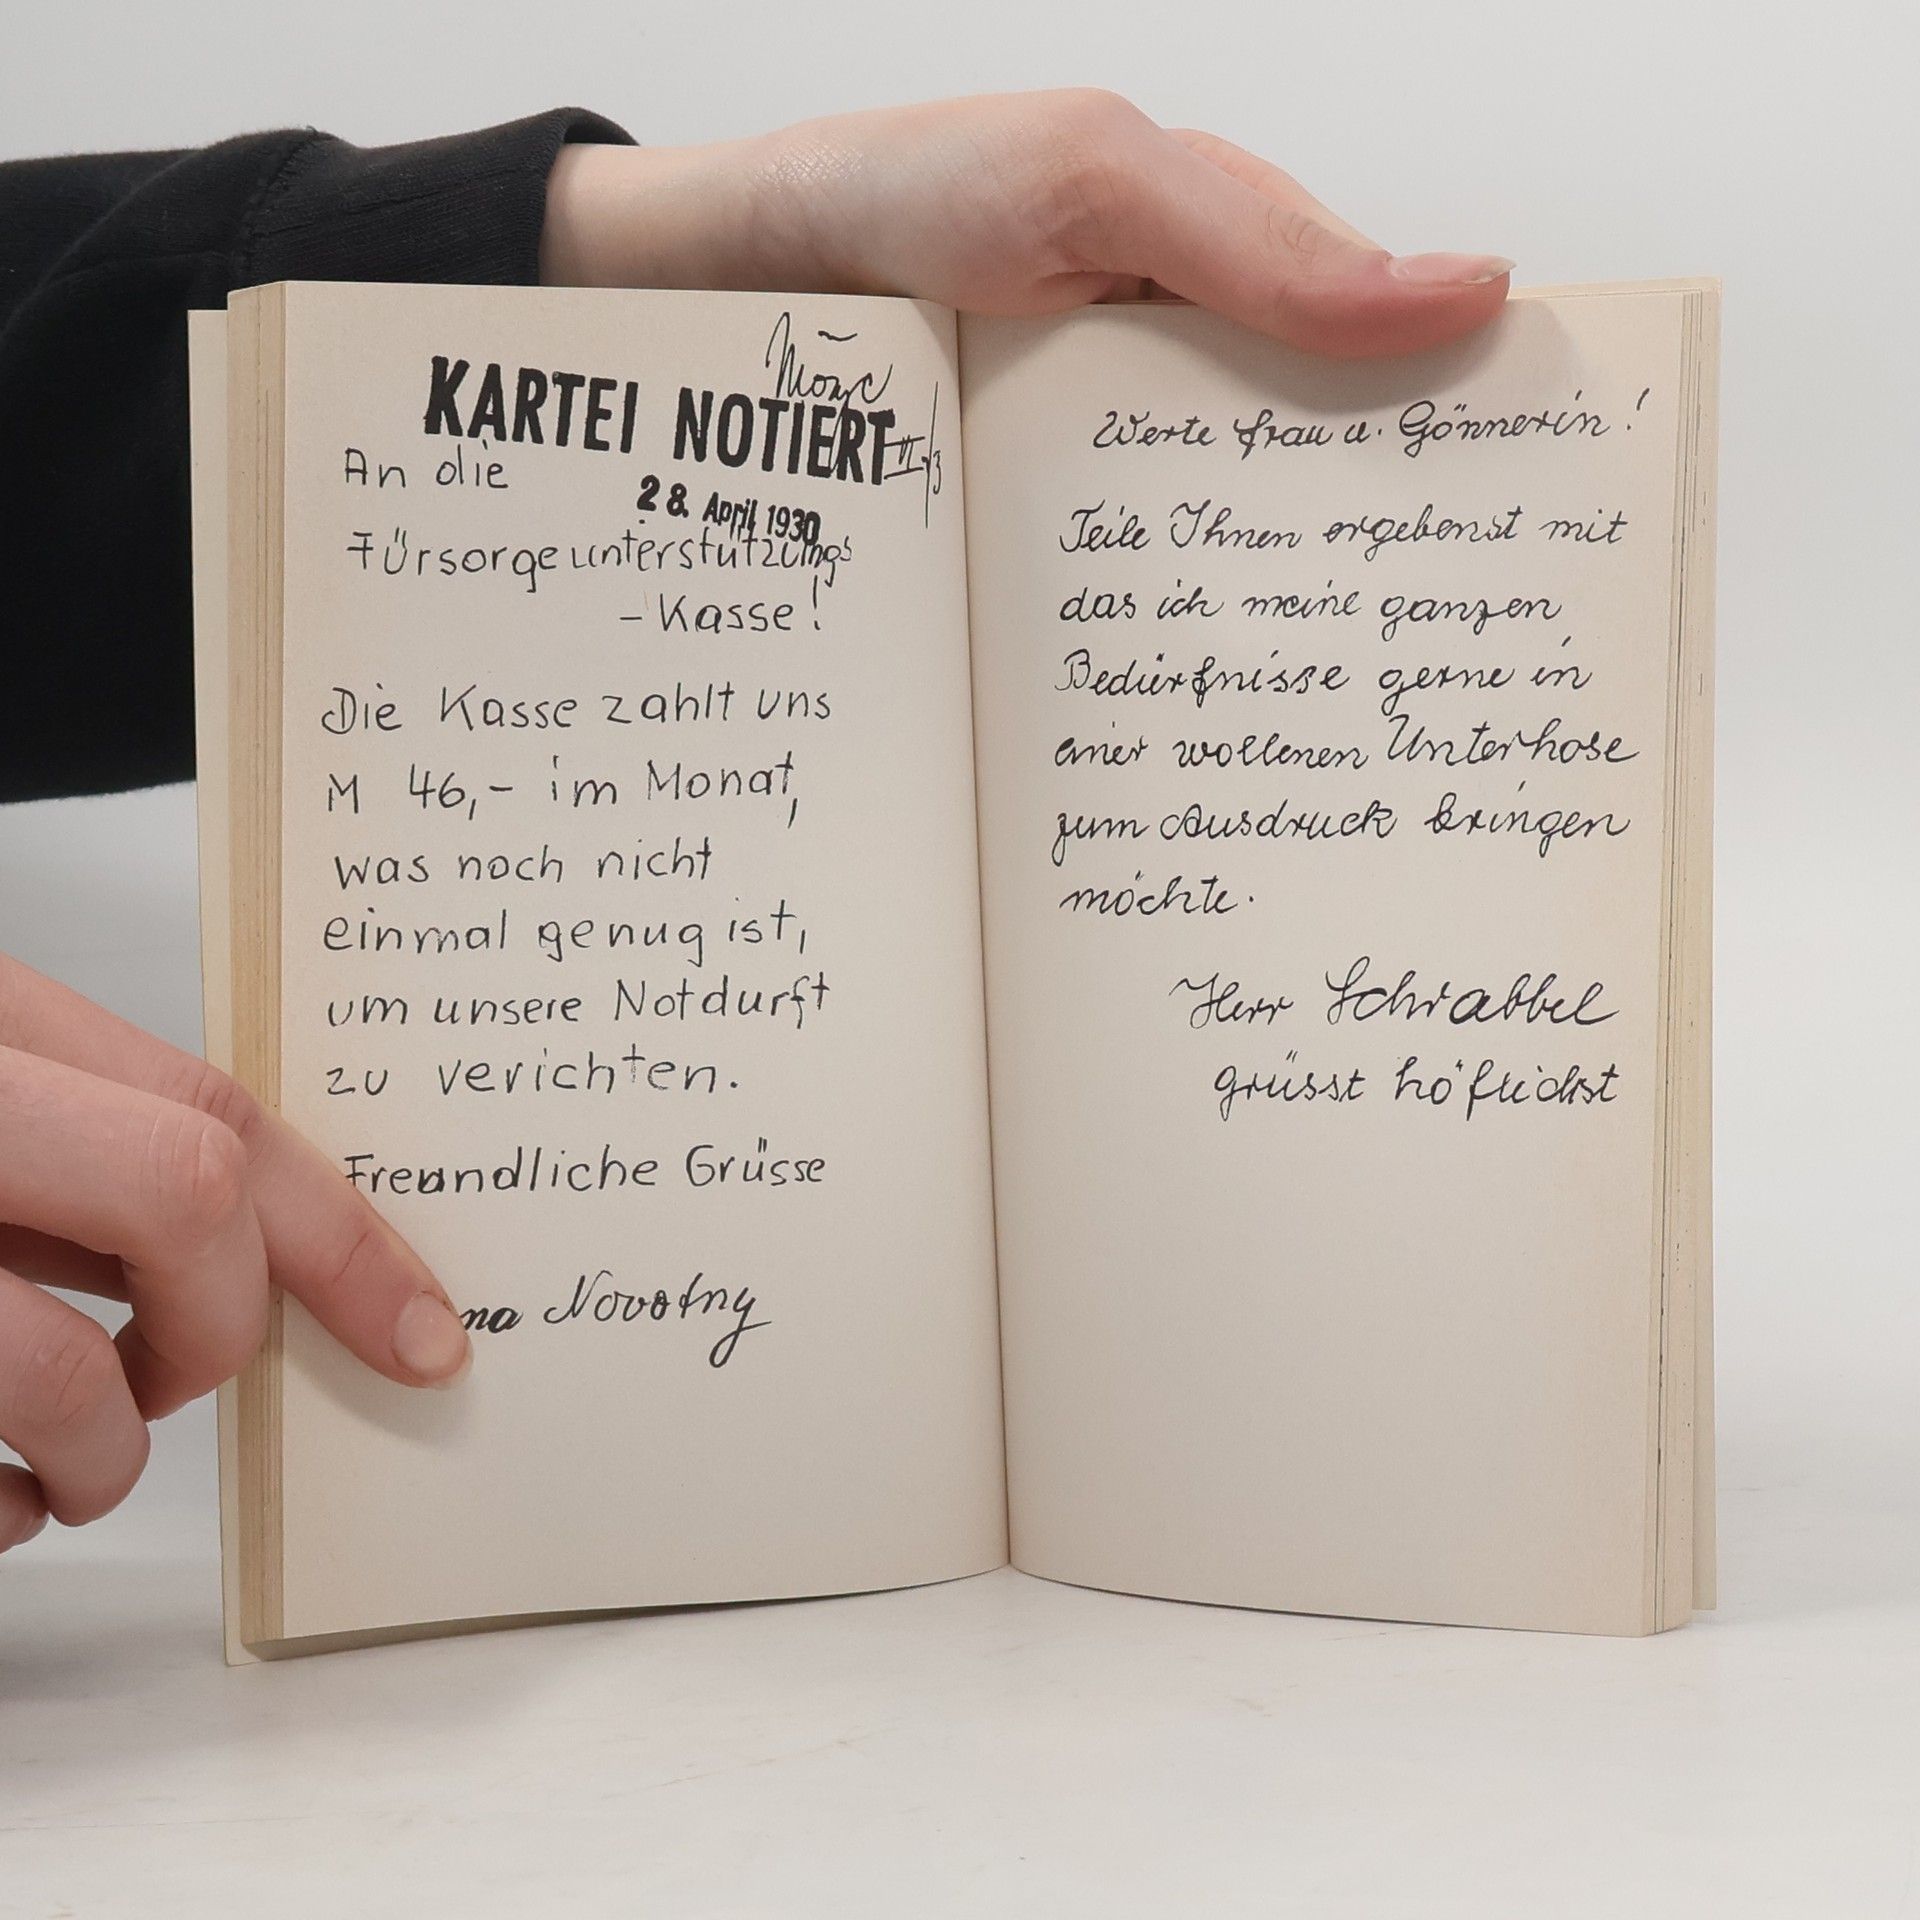 KARTEI NOTIERT
28. April 1930
An die
Fürsorgeunterstützungs
-Kasse!
Die Kasse zahlt uns
M 46,- im Monat,
was noch nicht
einmal genug ist,
um unsere Notdurft
zu verichten.
Freundliche Grüsse
Novotny
Werte Frau u. Gönnerin!
Teile Ihnen ergebenst mit
das ich meine ganzen
Bedürfnisse gerne in
einer wollenen Unterhose
zum Ausdruck bringen
möchte.
Herr Schrabbel
grüsst höflichst